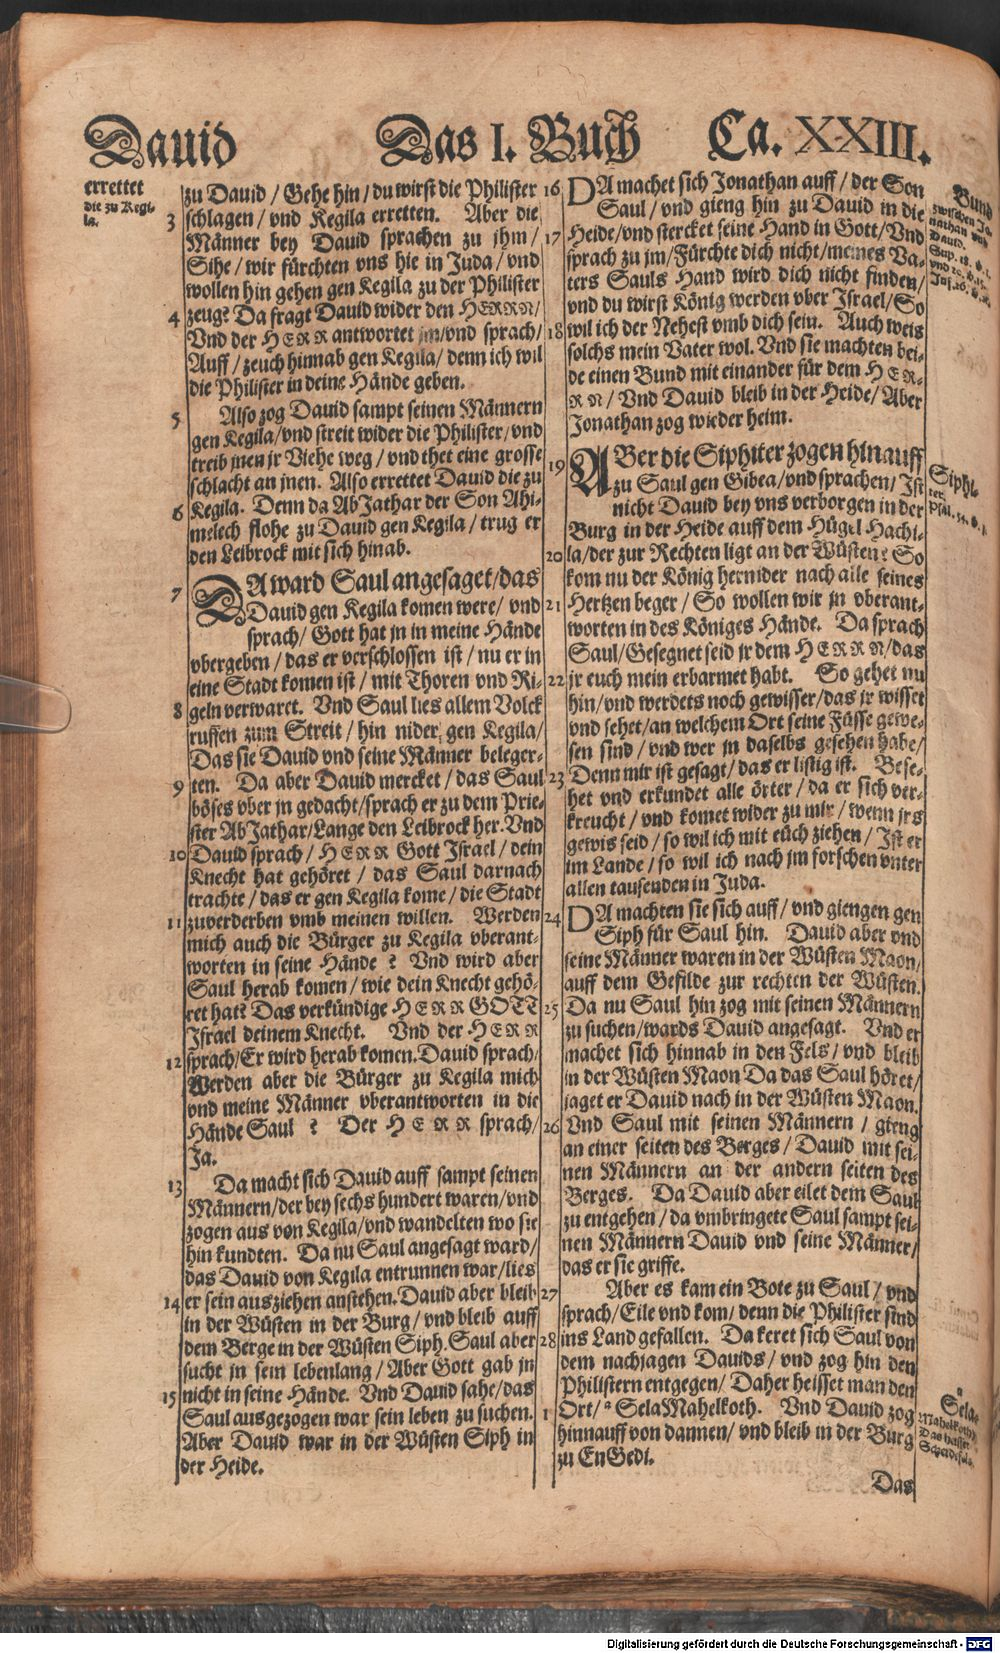 Dauid Das I. Buch Ca. XXIII.
errettet
die zu Kegi-
la.
zu Dauid / Gehe hin / du wirst die Philister
3 schlagen / vnd Kegila erretten. Aber die
Männer bey Dauid sprachen zu jhm /
Sihe / wir fürchten vns hie in Juda / vnd
wollen hin gehen gen Kegila zu der Philister
4 zeug? Da fragt Dauid wider den HERRN /
Vnd der HERR antwortet jm / vnd sprach /
Auff / zeuch hinnab gen Kegila / denn ich wil
die Philister in deine Hände geben.
5 Also zog Dauid sampt seinen Männern
gen Kegila / vnd streit wider die Philister / vnd
treib jnen jr Viehe weg / vnd thet eine grosse
schlacht an jnen. Also errettet Dauid die zu
6 Kegila. Denn da AbJathar der Son Ahi-
melech flohe zu Dauid gen Kegila / trug er
den Leibrock mit sich hinab.
7 DA ward Saul angesaget / das
Dauid gen Kegila komen were / vnd
sprach / Gott hat jn in meine Hände
vbergeben / das er verschlossen ist / nu er in
eine Stadt komen ist / mit Thoren vnd Ri-
8 geln verwaret. Vnd Saul lies allem Volck
ruffen zum Streit / hin nider gen Kegila /
Das sie Dauid vnd seine Männer beleger-
9 ten. Da aber Dauid mercket / das Saul
böses vber jn gedacht / sprach er zu dem Prie-
ster AbJathar / Lange den Leibrock her. Vnd
10 Dauid sprach / HERR Gott Israel / dein
Knecht hat gehöret / das Saul darnach
trachte / das er gen Kegila kome / die Stadt
11 zuverderben vmb meinen willen. Werden
mich auch die Bürger zu Kegila vberant-
worten in seine Hände? Vnd wird aber
Saul herab komen / wie dein Knecht gehö-
ret hat? Das verkündige HERR GOTT
Israel deinem Knecht. Vnd der HERR
12 sprach / Er wird herab komen. Dauid sprach /
Werden aber die Bürger zu Kegila mich
vnd meine Männer vberantworten in die
Hände Saul? Der HERR sprach /
Ja.
13 Da macht sich Dauid auff sampt seinen
Männern / der bey sechs hundert waren / vnd
zogen aus von Kegila / vnd wandelten wo sie
hin kundten. Da nu Saul angesagt ward /
das Dauid von Kegila entrunnen war / lies
14 er sein ausziehen anstehen. Dauid aber bleib
in der Wüsten in der Burg / vnd bleib auff
dem Berge in der Wüsten Siph. Saul aber
sucht jn sein lebenlang / Aber Gott gab jn
15 nicht in seine Hände. Vnd Dauid sahe / das
Saul ausgezogen war sein leben zu suchen.
Aber Dauid war in der Wüsten Siph in
der Heide.
16 DA machet sich Jonathan auff / der Son
Saul / vnd gieng hin zu Dauid in die
17 Heide / vnd stercket seine Hand in Gott / Vnd
sprach zu jm / Fürchte dich nicht / meines Va-
ters Sauls Hand wird dich nicht finden /
vnd du wirst König werden vber Israel / So
18 wil ich der Nehest vmb dich sein. Auch weis
solchs mein Vater wol. Vnd sie machten bei-
de einen Bund mit einander für dem HER-
RN / Vnd Dauid bleib in der Heide / Aber
Jonathan zog wieder heim.
19 ABer die Siphiter zogen hinauff
zu Saul gen Gibea / vnd sprachen / Ist
nicht Dauid bey vns verborgen in der
Burg in der Heide auff dem Hügel Hachi-
20 la / der zur Rechten ligt an der Wüsten? So
kom nu der König hernider nach alle seines
21 Hertzen beger / So wollen wir jn vberant-
worten in des Königes Hände. Da sprach
Saul / Gesegnet seid jr dem HERRN / das
22 jr euch mein erbarmet habt. So gehet nu
hin / vnd werdets noch gewisser / das jr wisset
vnd sehet / an welchem Ort seine Füsse gewe-
sen sind / vnd wer jn daselbs gesehen habe /
23 Denn mir ist gesagt / das er listig ist. Bese-
het vnd erkundet alle örter / da er sich ver-
kreucht / vnd komet wider zu mir / wenn jrs
gewis seid / so wil ich mit euch ziehen / Ist er
im Lande / so wil ich nach jm forschen vnter
allen tausenden in Juda.
24 DA machten sie sich auff / vnd giengen gen
Siph für Saul hin. Dauid aber vnd
seine Männer waren in der Wüsten Maon /
auff dem Gefilde zur rechten der Wüsten.
25 Da nu Saul hin zog mit seinen Männern
zu suchen / wards Dauid angesagt. Vnd er
machet sich hinnab in den Fels / vnd bleib
in der Wüsten Maon Da das Saul höret /
jaget er Dauid nach in der Wüsten Maon.
26 Vnd Saul mit seinen Männern / gieng
an einer seiten des Berges / Dauid mit sei-
nen Männern an der andern seiten des
Berges. Da Dauid aber eilet dem Saul
zu entgehen / da vmbringete Saul sampt sei-
nen Männern Dauid vnd seine Männer /
das er sie griffe.
27 Aber es kam ein Bote zu Saul / vnd
sprach / Eile vnd kom / denn die Philister sind
28 ins Land gefallen. Da keret sich Saul von
dem nachjagen Dauids / vnd zog hin den
Philistern entgegen / Daher heisset man den
1 Ort / a SelaMahelkoth. Vnd Dauid zog
hinnauff von dannen / vnd bleib in der Burg
zu EnGedi.
Das
Bund
zwischen Jo-
nathan vnd
Dauid.
Sup. 18. &. 1.
vnd 20. &. 15.
Siphi-
ter.
Psal. 54. &. 1.
a
Sela
Mahelkoth)
Das heisset
Scheidefels.
Digitalisierung gefördert durch die Deutsche Forschungsgemeinschaft - DFG